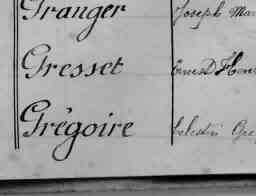 Granger Joseph
Gresset Ernest
Grégoire Celestin